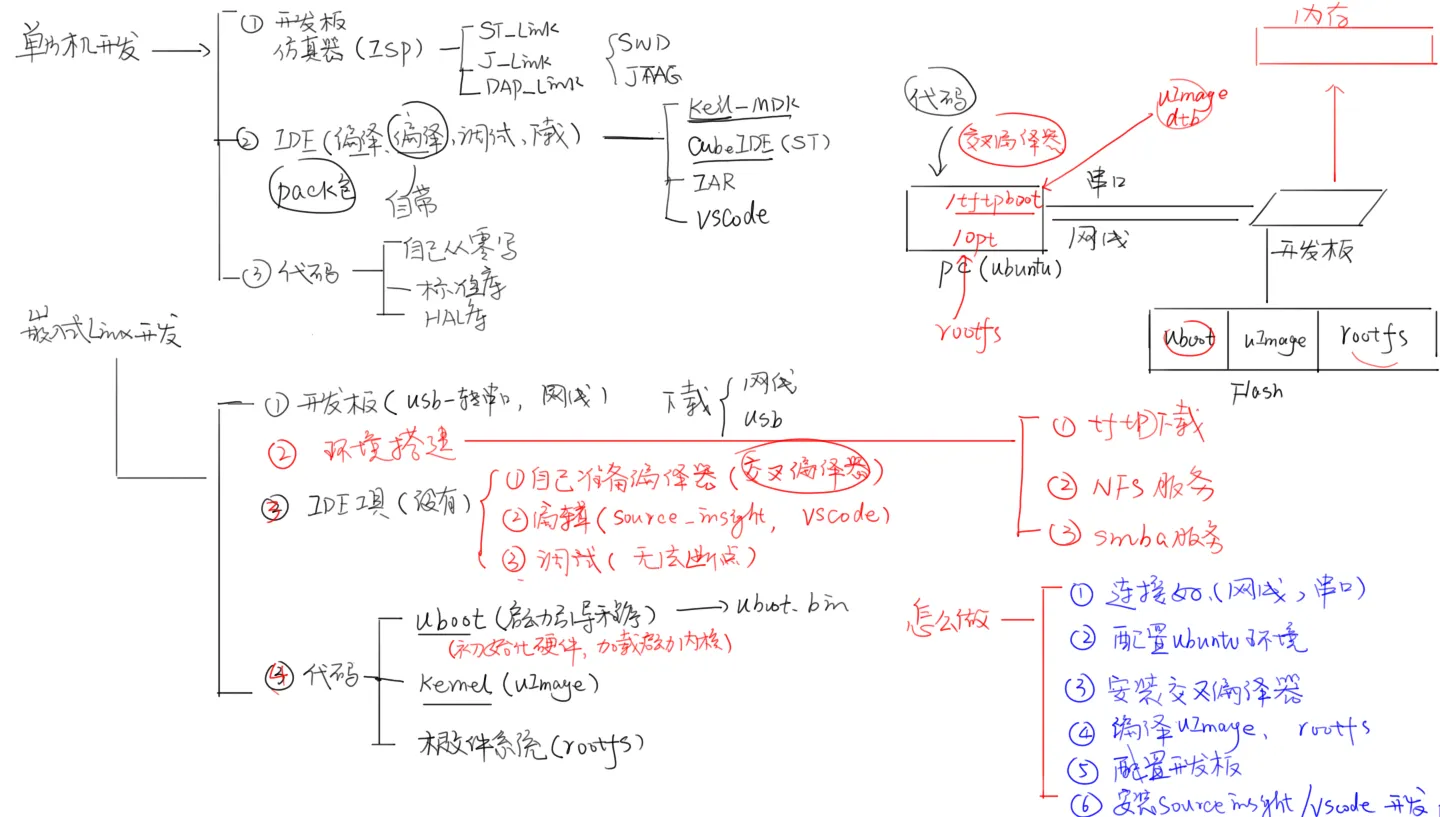 单片机开发
① 开发板
仿真器(ISP)
ST_Link
J_Link
DAP_Link
SWD
JTAG
② IDE(编译,编译,调试,下载)
pack包
自带
Keil_MDK
CubeIDE(ST)
IAR
VSCode
③ 代码
自己从零写
标准库
HAL库
内存
代码
交叉编译器
uImage
dtb
/tftpboot
/opt
PC(ubuntu)
rootfs
串口
网线
开发板
uboot
uImage
rootfs
Flash
嵌入式Linx开发
① 开发板(usb-转串口,网线)
下载
网线
usb
② 环境搭建
① tftp下载
② NFS服务
③ smba服务
③ IDE工具(没有)
①自己准备编译器(交叉编译器)
②编辑(source_insight, vscode)
③调试(无法断点)
④ 代码
uboot(启动引导程序)
uboot.bin
(初始化硬件,加载启动内核)
Kernel(uImage)
根文件系统(rootfs)
怎么做
① 连接如(网线,串口)
② 配置ubuntu环境
③ 安装交叉编译器
④ 编译uImage、rootfs
⑤ 配置开发板
⑥ 安装Source insight/Vscode 开发